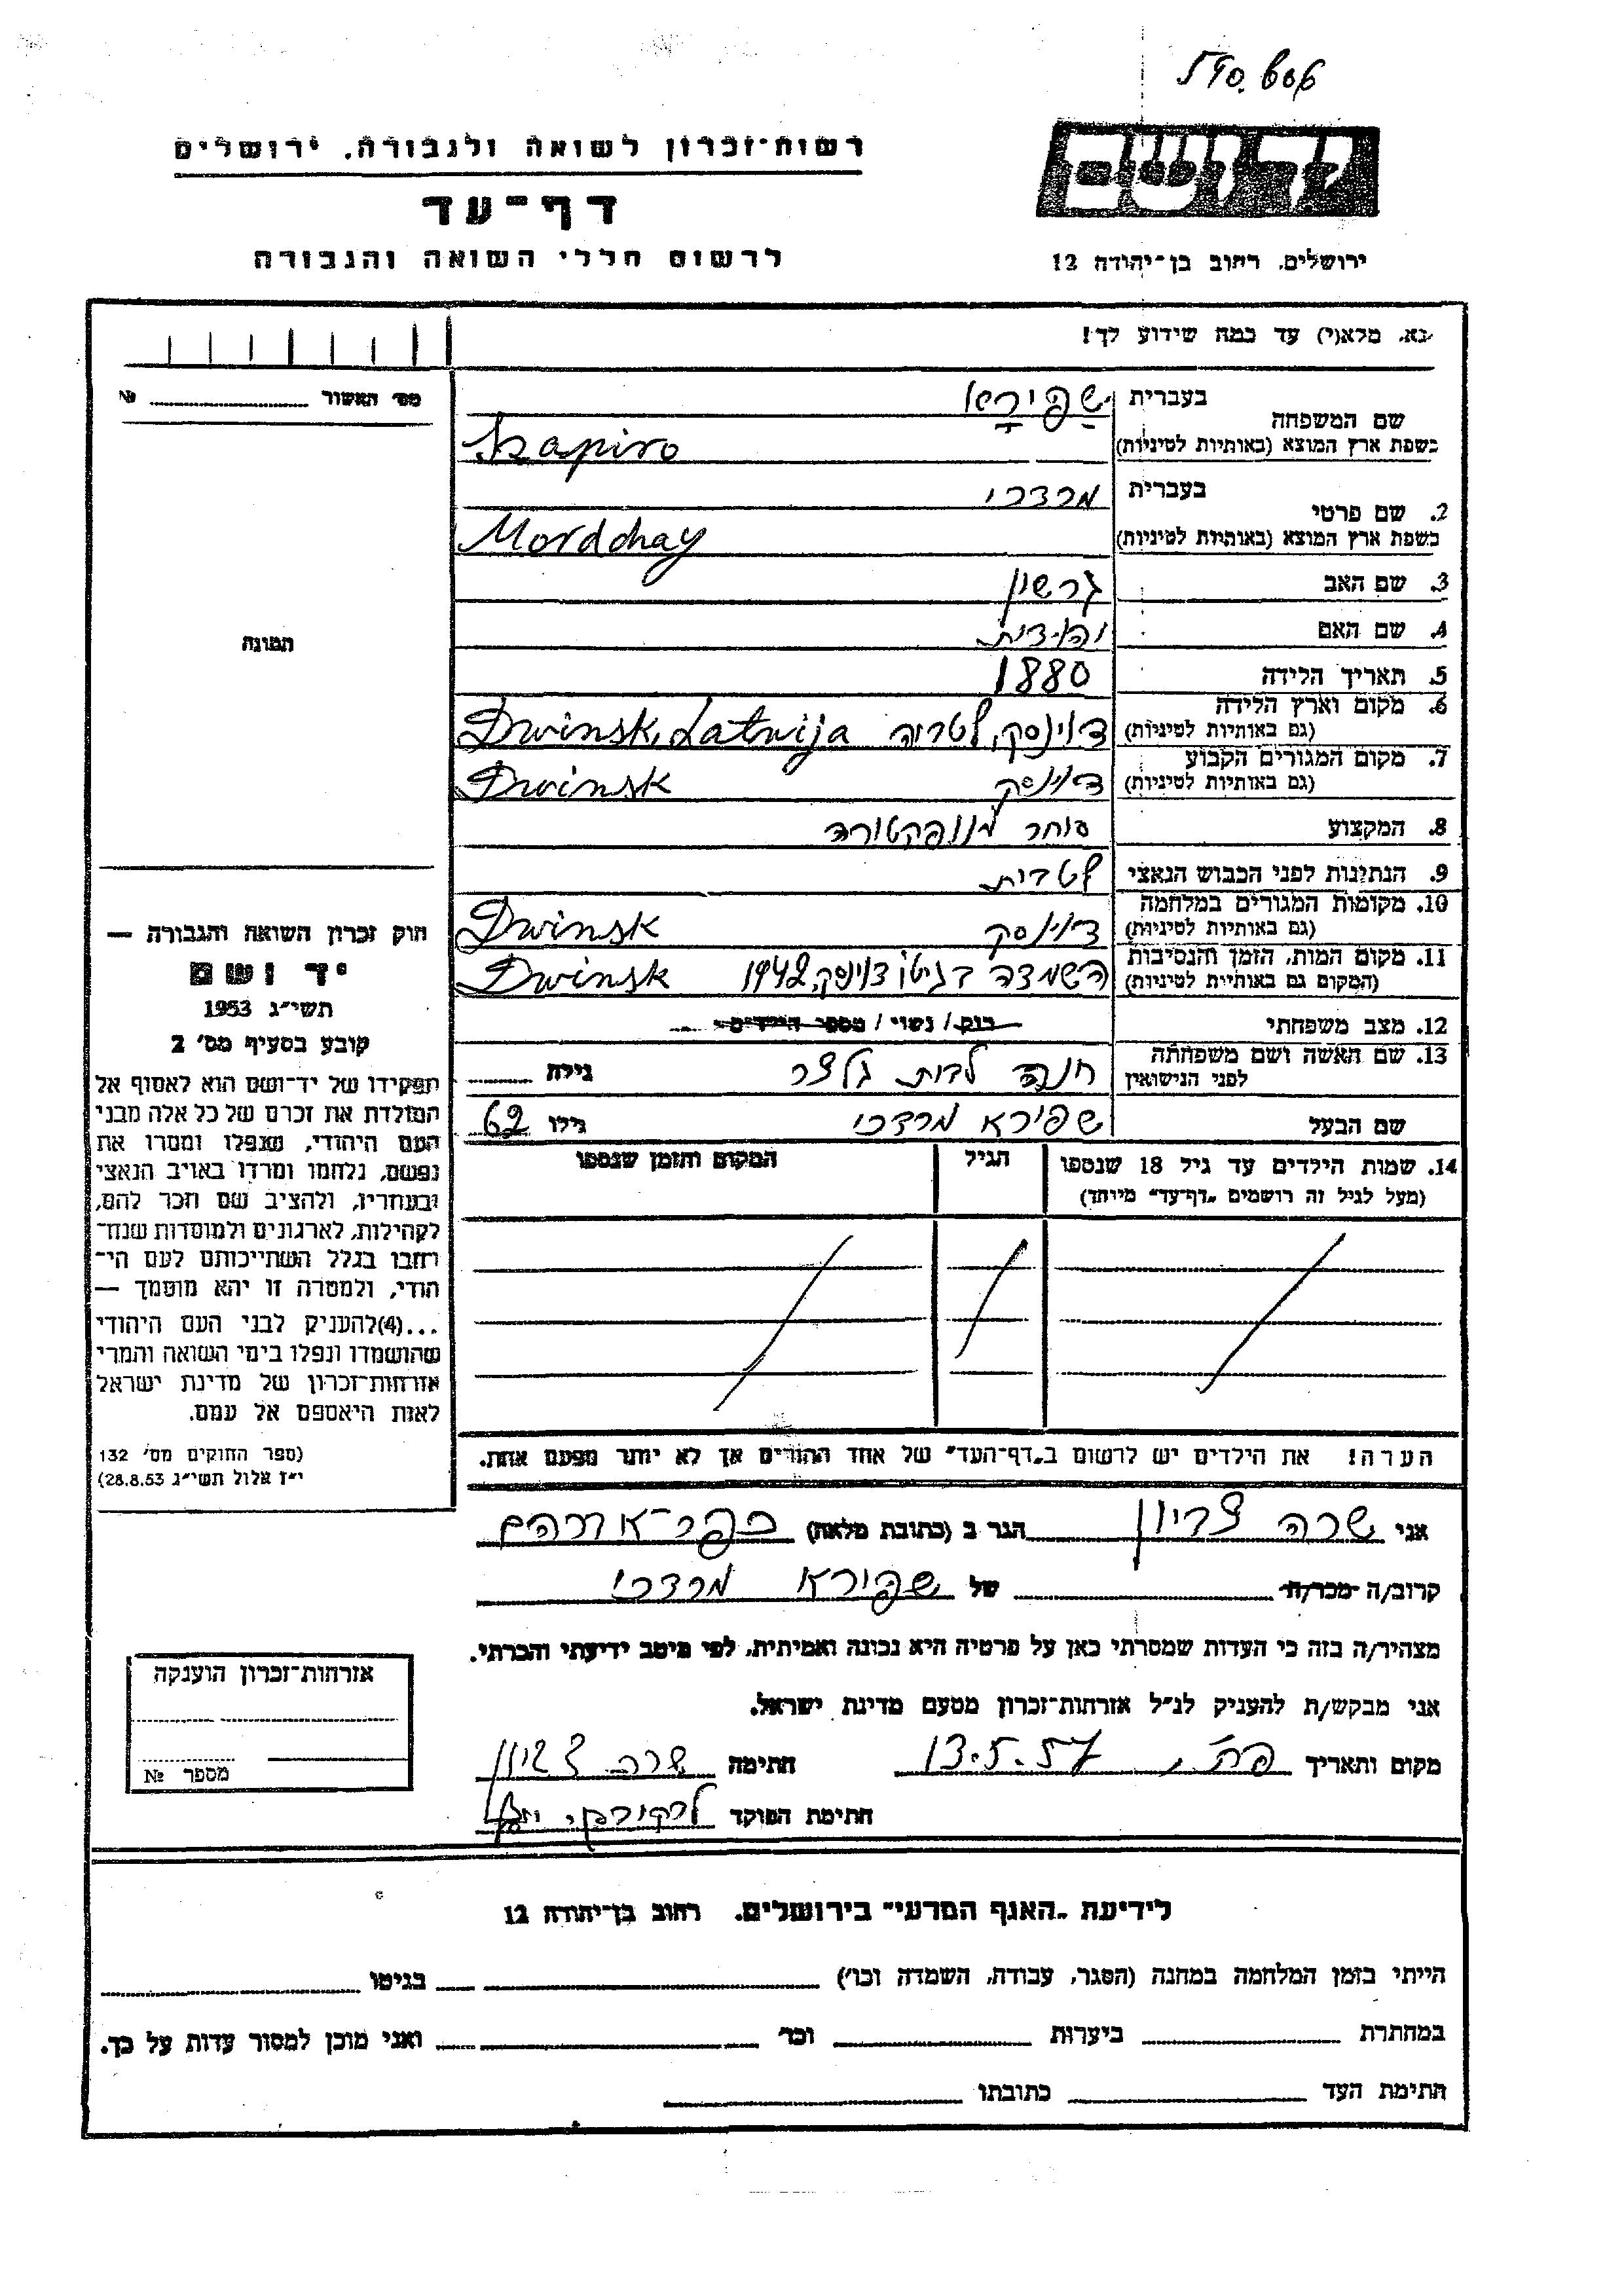 רשות־זכרון לשואה ולגבורה, ירושלים
דף־עד
לרשום חללי השואה והגבורה
ירושלים, רחוב בן־יהודה 12
נא, מלא(י) עד כמה שידוע לך!
מס׳ האשור № 
שם המשפחה
בעברית שפירא
בשפת ארץ המוצא (באותיות לטיניות) Szapiro
2. שם פרטי
בעברית מרדכי
בשפת ארץ המוצא (באותיות לטיניות) Mordchay
3. שם האב גרשון
4. שם האם יהודית
5. תאריך הלידה 1880
6. מקום וארץ הלידה
(גם באותיות לטיניות) דוינסק, לטביה Dwinsk, Latwija
7. מקום המגורים הקבוע
(גם באותיות לטיניות) דוינסק Dwinsk
8. המקצוע סוחר מנופקטורה
9. הנתינות לפני הכבוש הנאצי לטבית
10. מקומות המגורים במלחמה
(גם באותיות לטיניות) דוינסק Dwinsk
11. מקום המות, הזמן והנסיבות
(המקום גם באותיות לטיניות) השמדה בגיטו דוינסק, 1942 Dwinsk
12. מצב משפחתי רוק / נשוי / מספר הילדים
13. שם האשה ושם משפחתה
לפני הנישואין חנה לבית גלצר גילה
שם הבעל שפירא מרדכי גילו 62
14. שמות הילדים עד גיל 18 שנספו הגיל המקום והזמן שנספו
(מעל לגיל זה רושמים „דף־עד” מיוחד)
הערה! את הילדים יש לרשום ב„דף־העד” של אחד ההורים אך לא יותר מפעם אחת.
תמונה
חוק זכרון השואה והגבורה —
יד ושם
תשי״ג 1953
קובע בסעיף מס׳ 2
תפקידו של יד־ושם הוא לאסוף אל
המולדת את זכרם של כל אלה מבני
העם היהודי, שנפלו ומסרו את
נפשם, נלחמו ומרדו באויב הנאצי
ובעוזריו, ולהציב שם וזכר להם,
לקהילות, לארגונים ולמוסדות שנח־
רבו בגלל השתייכותם לעם הי־
הודי, ולמטרה זו יהא מוסמך —
...(4)להעניק לבני העם היהודי
שהושמדו ונפלו בימי השואה והמרי
אזרחות־זכרון של מדינת ישראל
לאות היאספם אל עמם.
(ספר החוקים מס׳ 132
י״ז אלול תשי״ג 28.8.53)
אני שרה צביון הגר ב (כתובת מלאה) כפר־אברהם
קרוב/ה מכר/ה של שפירא מרדכי
מצהיר/ה בזה כי העדות שמסרתי כאן על פרטיה היא נכונה ואמיתית, לפי מיטב ידיעתי והכרתי.
אני מבקש/ת להעניק לנ״ל אזרחות־זכרון מטעם מדינת ישראל.
מקום ותאריך פ״ת, 13.5.57 חתימה שרה צביון
חתימת הפוקד
אזרחות־זכרון הוענקה
מספר №
לידיעת „האגף המדעי” בירושלים, רחוב בן־יהודה 12
הייתי בזמן המלחמה במחנה (הסגר, עבודה, השמדה וכו׳) בגיטו
במחתרת ביערות וכו׳ ואני מוכן למסור עדות על כך.
חתימת העד כתובתו